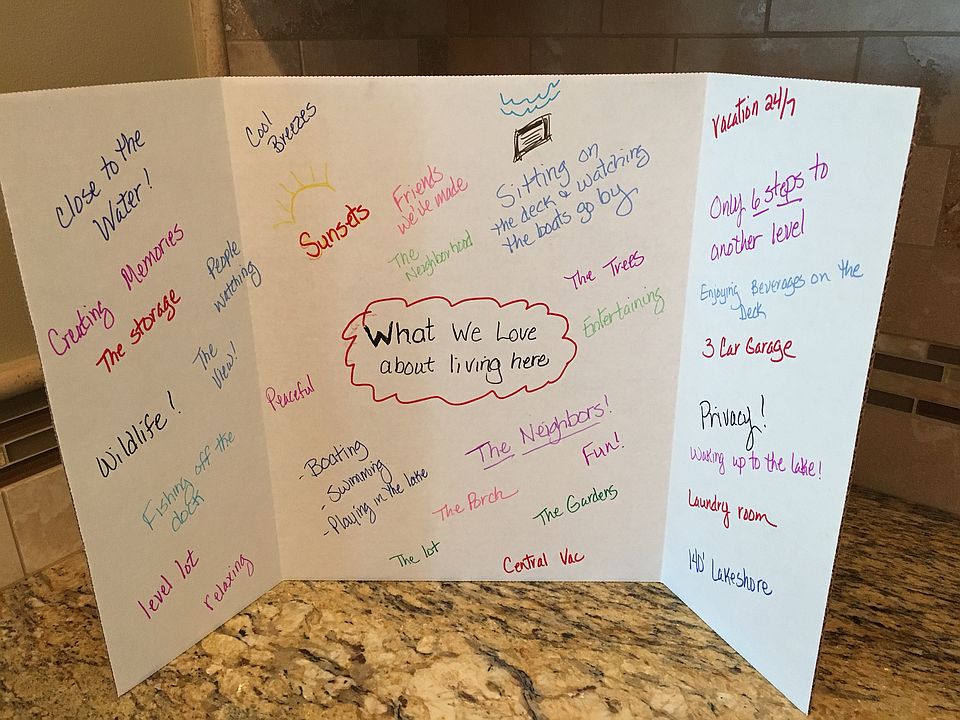 Close to the
Water!
Creating Memories
The storage
People
watching
The
View!
Wildlife!
Fishing off the
dock
level lot
relaxing
Cool
Breezes
Sunsets
Friends
we've made
The
Neighborhood
Sitting on
the deck & watching
the boats go by
The Trees
Entertaining
What We Love
about living here
Peaceful
- Boating
- Swimming
- Playing in the lake
The Neighbors!
Fun!
The Porch
The Gardens
The lot
Central Vac
Vacation 24/7
Only 6 steps to
another level
Enjoying Beverages on the
Deck
3 Car Garage
Privacy!
Waking up to the lake!
Laundry room
140' Lakeshore